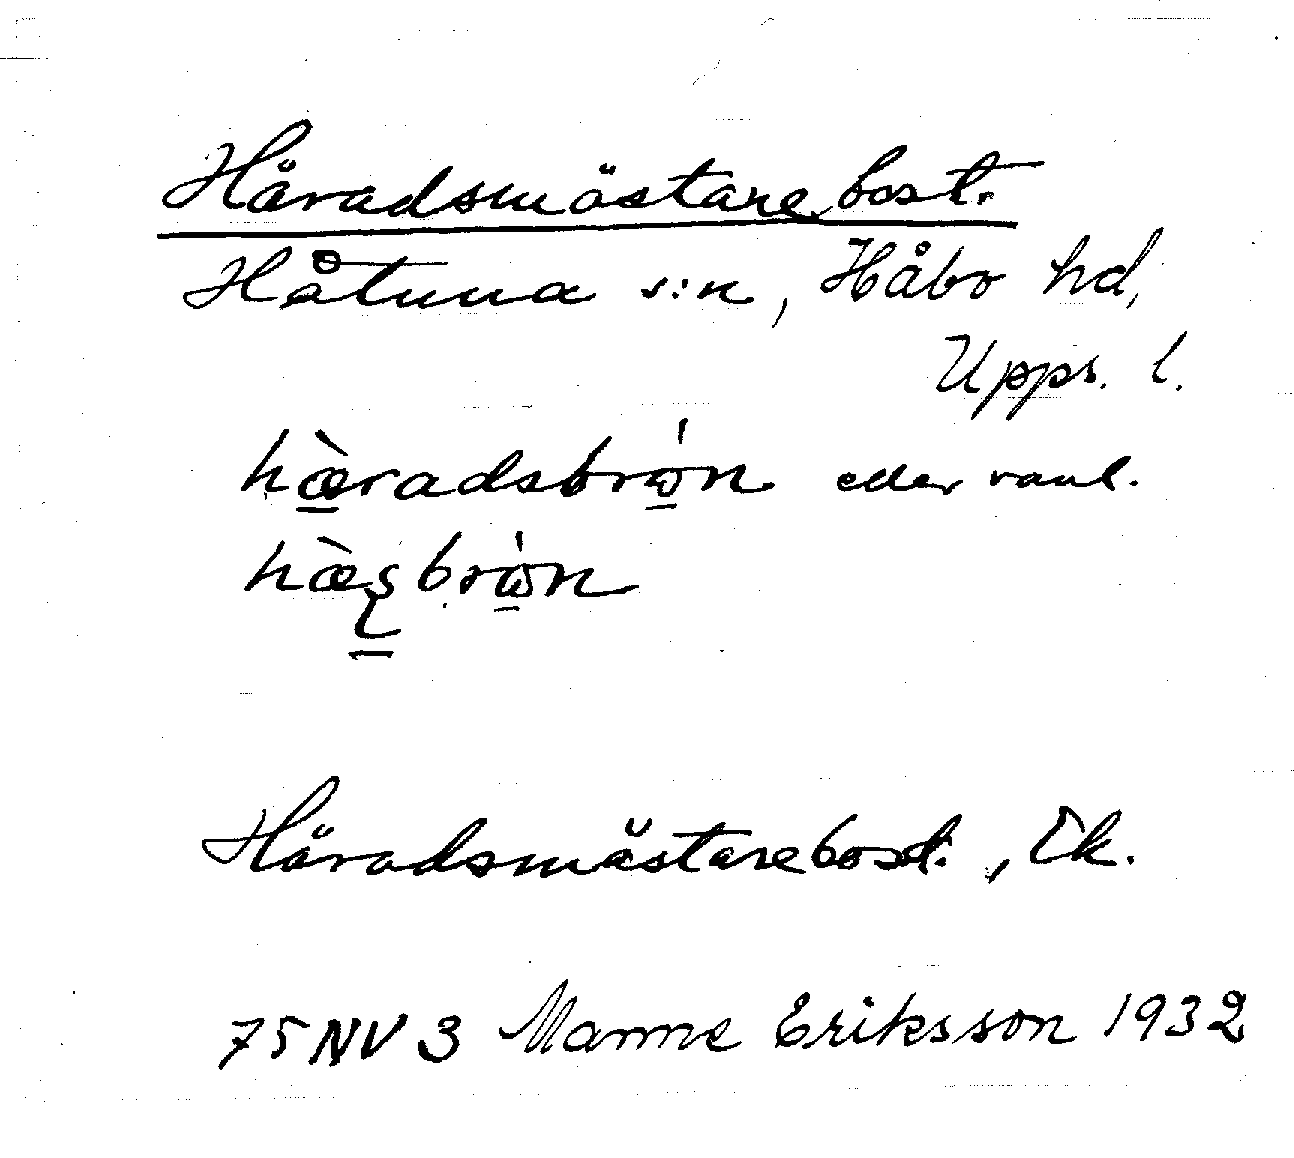 Häradsmästarebost.
Håtuna s:n, Håbo hd,
Upps. l.
hæ̀radsbrώn eller vanl.
hæ̀ṣbrώn
Häradsmästarebost., Ek.
75NV3 Manne Eriksson 1932